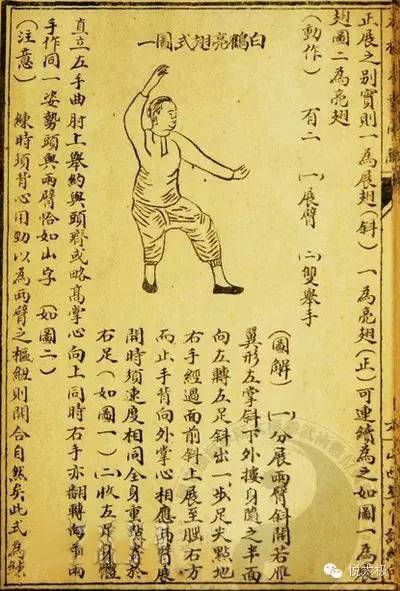 正展之别實則一為展翅(斜) 一為亮翅(正)可連續為之如圖一為
翅圖二為亮翅
(動作) 有二 (一)展臂 (二)雙舉手
白鶴亮翅式圖一
(圖解) (一)分展兩臂斜開若雁
翼形左掌斜下外摟身隨之半面
向左轉左足斜出一步足尖點地
右手經過面前斜上展至腮右方
而止手背向外掌心相應兩臂展
開時須速度相同全身重點寄於
右足(如圖一) (二)收左足身體
直立左手曲肘上舉約與頭齊或略高掌心向上同時右手亦翻轉向兩
手作同一姿勢頭與兩臂恰如山字(如圖二)
(注意) 練時須背心用勁以為兩臂之樞紐則開合自然矣此式為練
悦太极